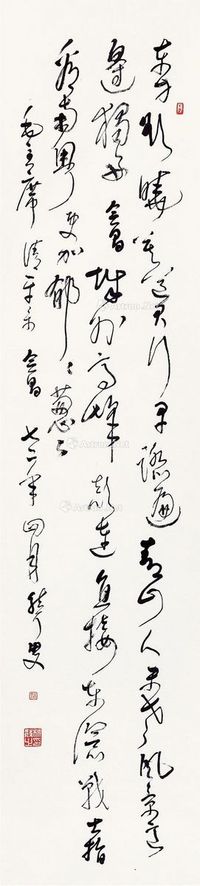 东方欲晓莫道君行早踏遍青山人未老风景这
边独好会昌城外高峰颠连直接东溟战士指
看南粤更加郁〻葱〻
毛主席清平乐会昌 七二年四月